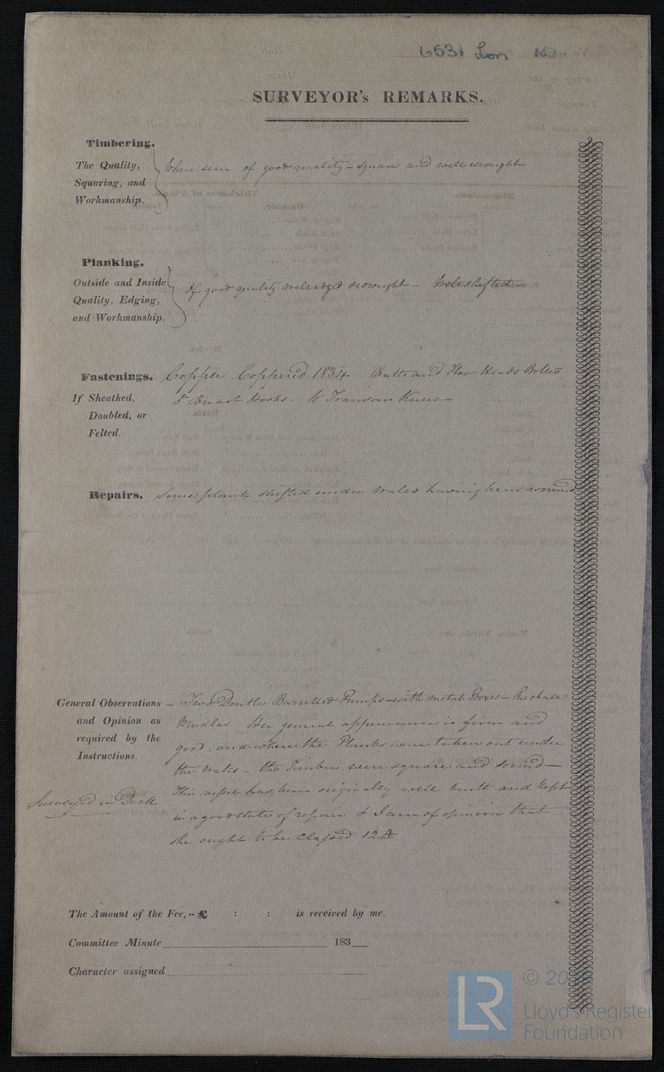 6531 Lon
SURVEYOR's REMARKS.
Timbering.
The Quality, Squaring, and Workmanship. Where seen of good quality - square and well wrought
Planking.
Outside and Inside Quality, Edging, and Workmanship. Of good quality well edged & wrought - Well shifted
Fastenings. Copper Coppered 1834 Butts and How Hoods Bolted
If Sheathed, 5 Breast Hooks - Transom Knees
Doubled, or
Felted.
Repairs. Some plank shifted under Wales having been
General Observations - Two Double Barrelled Pumps with metal Boxes - Purchase
and Opinion as Windlas. Her general appearance is firm and
required by the good, and where the Planks were taken out under
Instructions. the Wales - the Timbers were square and sound -
This vessel has been originally well built and kept
Surveyed in Dock
in a good state of repair & I am of opinion that
she ought to be classed 12 A
The Amount of the Fee, £ : : is received by me.
Committee Minute 183
Character assigned
LR
Lloyd's Register
Foundation